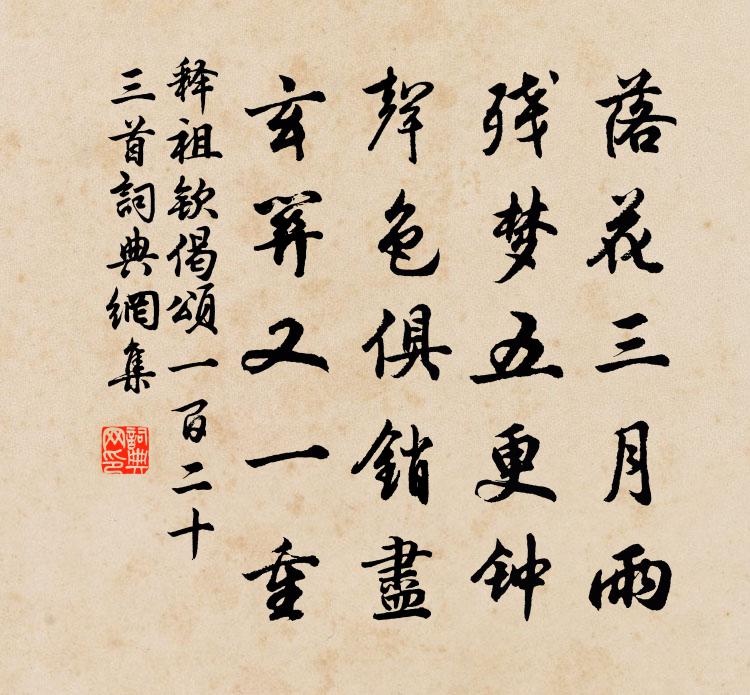 落花三月雨
残梦五更钟
聲色俱銷盡
玄關又一重
释祖欽偈頌一百二十
三首詞典網集
詞典
网印